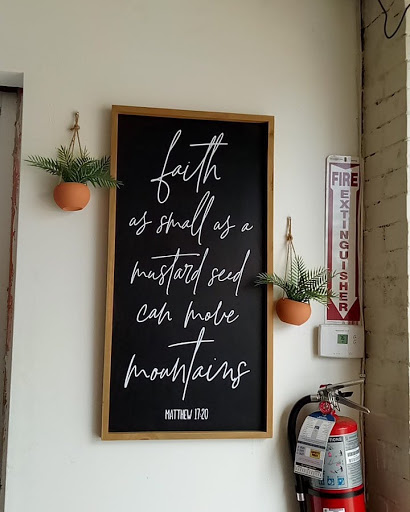 faith
as small as a
mustard seed
can move
mountains
MATTHEW 17:20
FIRE
EXTINGUISHER